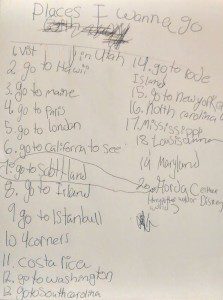 Places I wanna go
1. Visit in Utah
2. go to Hawii
3. go to maine
4. go to Paris
5. go to london
6. go to California to see
7. go to Scotland
8. go to Irland
9 go to Istanbull
10 4corners
11. costa rica
12. go to washington
13 go to South carolina
14. go to Rode
Island
15. go to New york
16. North carolina
17. Mississippi
18. Louisianna
19 Maryland
20 Florida
Disney